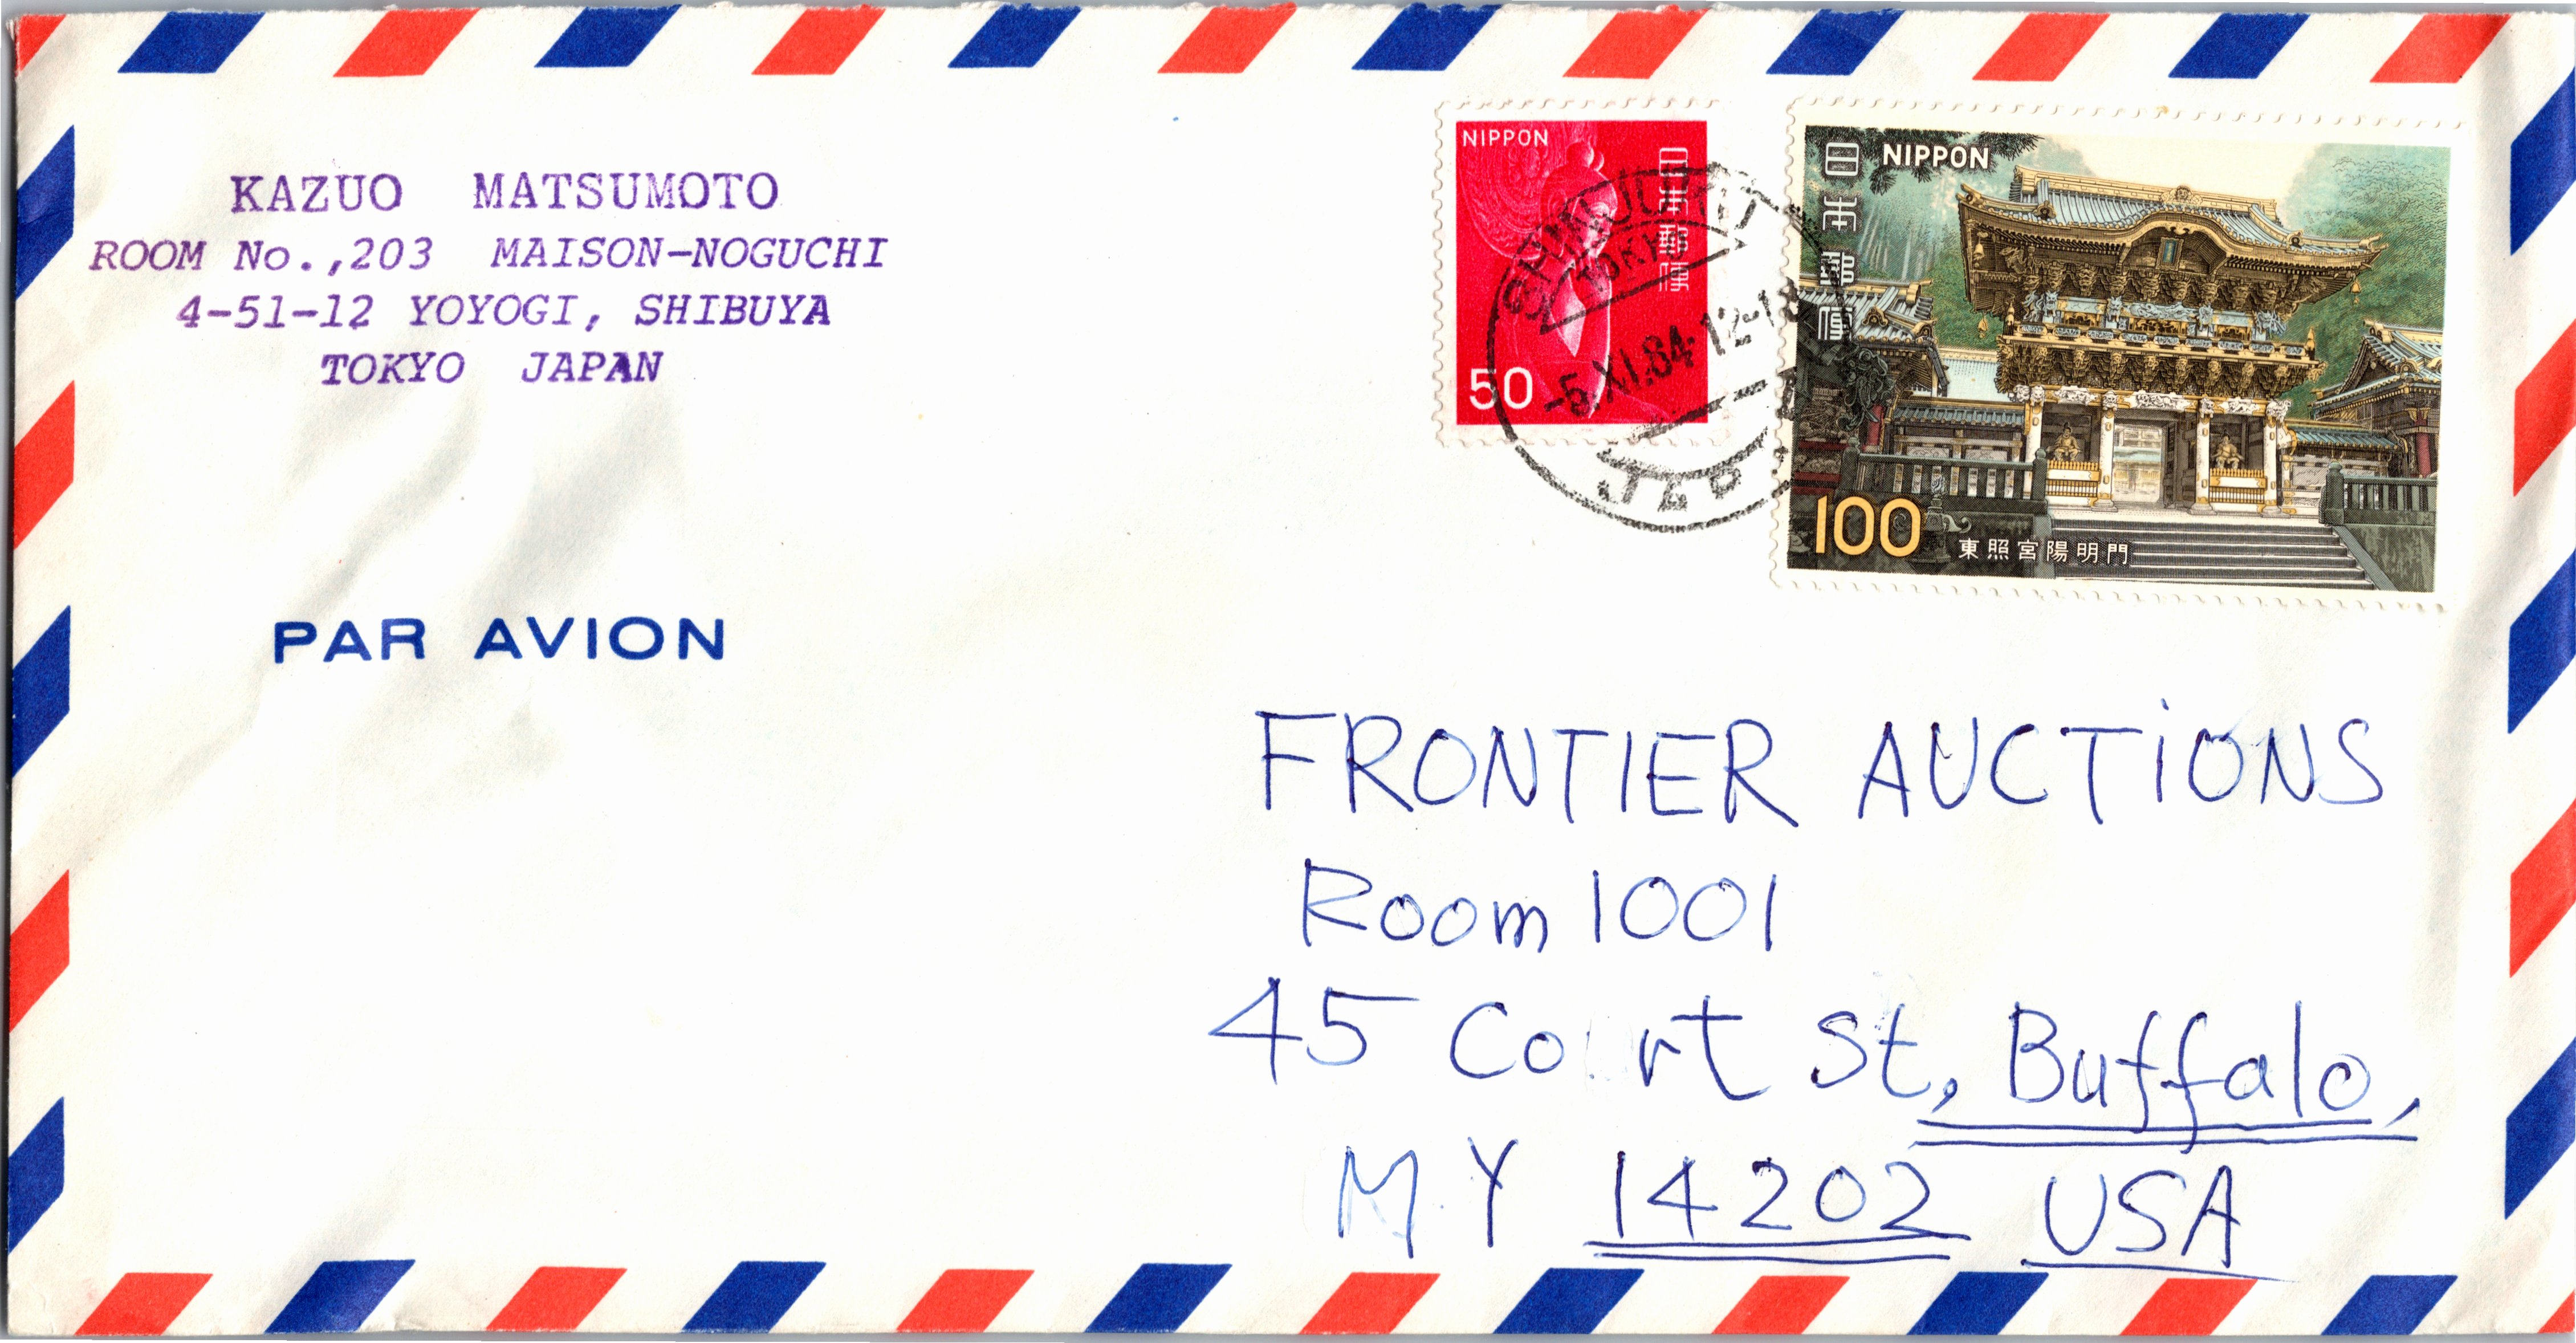 KAZUO MATSUMOTO
ROOM No.,203 MAISON-NOGUCHI
4-51-12 YOYOGI, SHIBUYA
TOKYO JAPAN
PAR AVION
NIPPON
日本郵便
50
NIPPON
日本郵便
100
東照宮陽明門
TOKYO
-5.XI.84.12-18
FRONTIER AUCTiONS
Room 1001
45 Co rt St, Buffalo,
M.Y 14202 USA